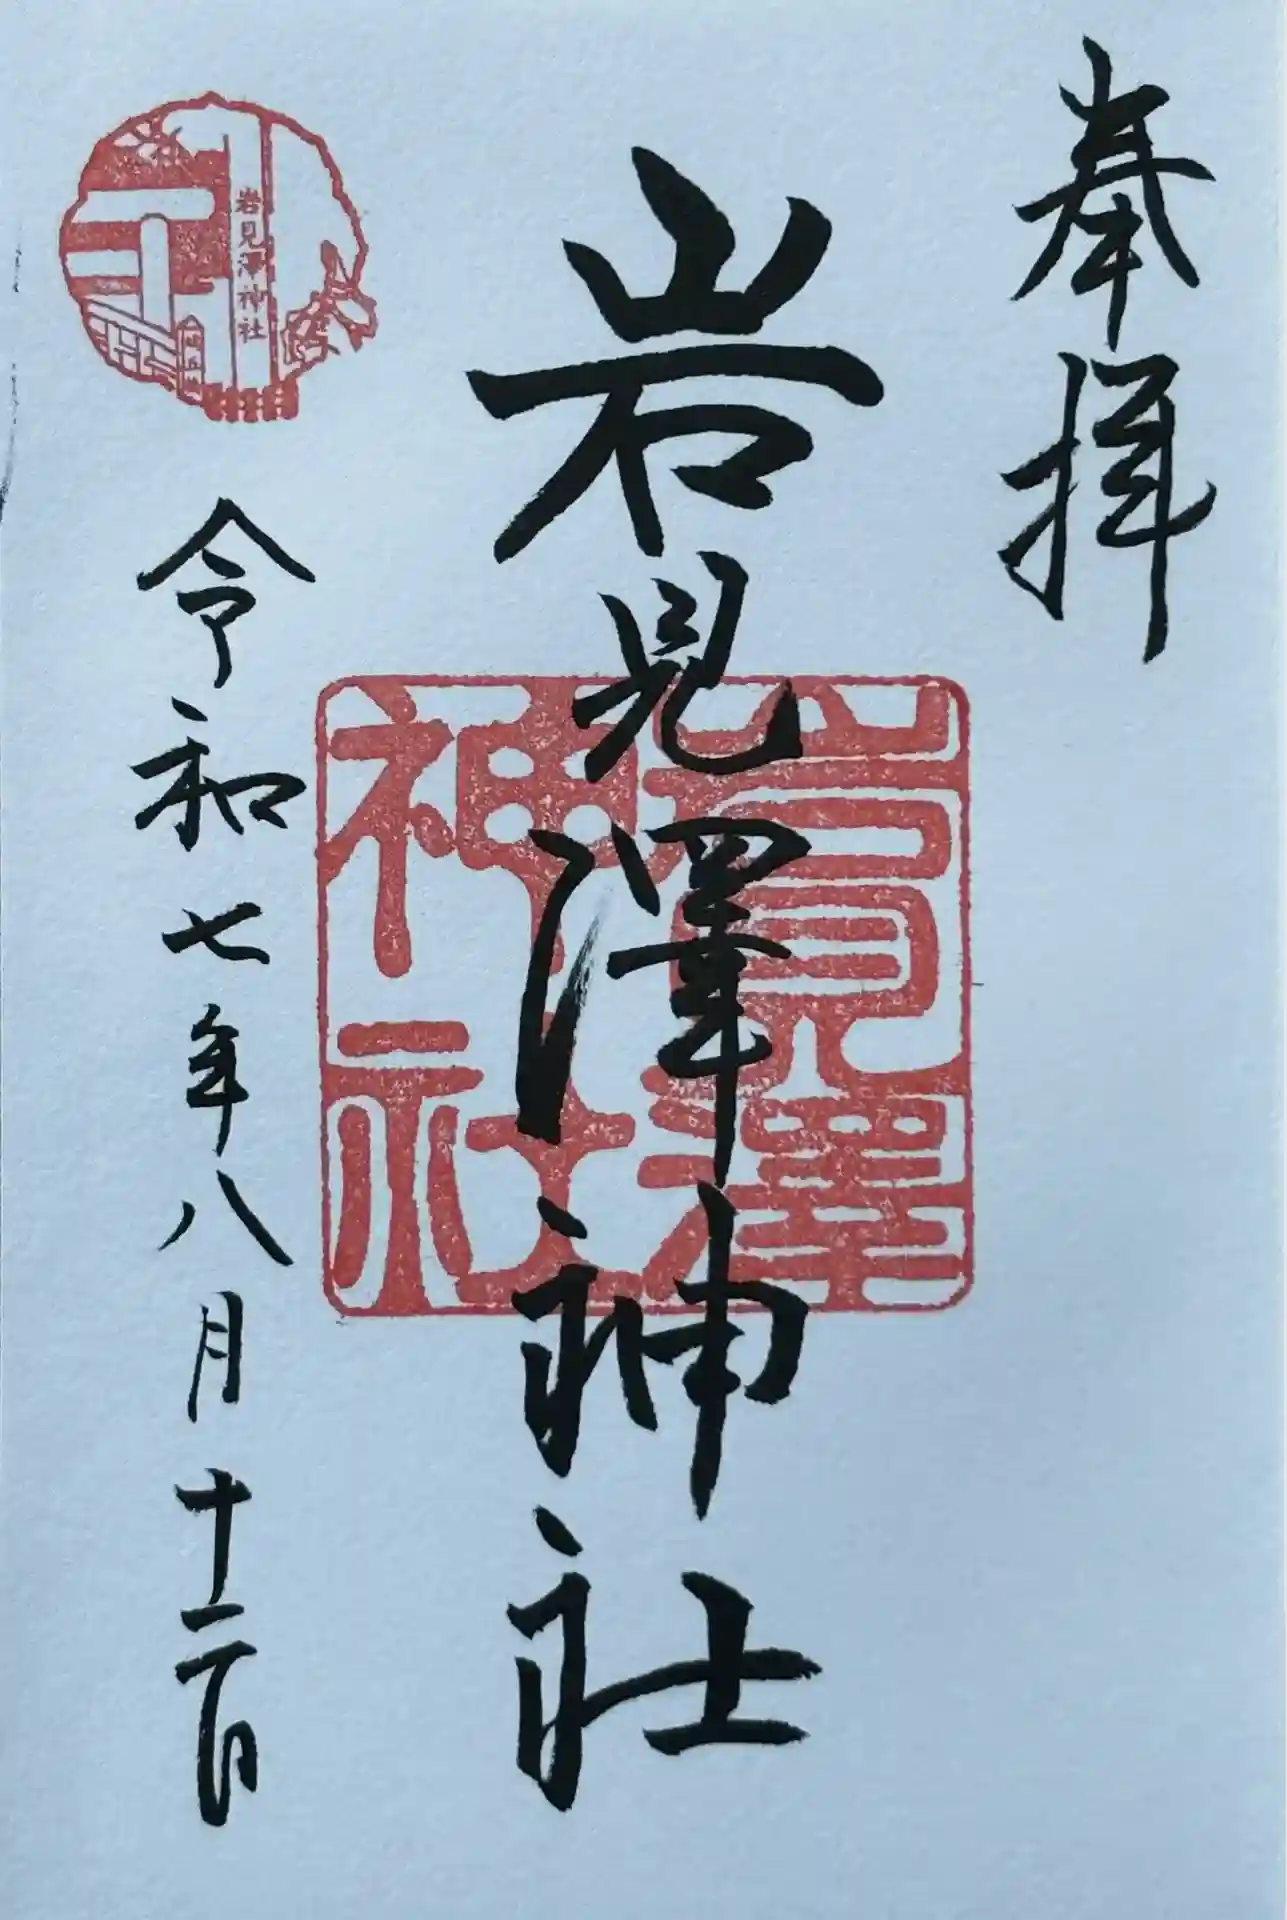 奉拝
岩見澤神社
岩見澤神社
岩見澤神社
令和七年八月十二日